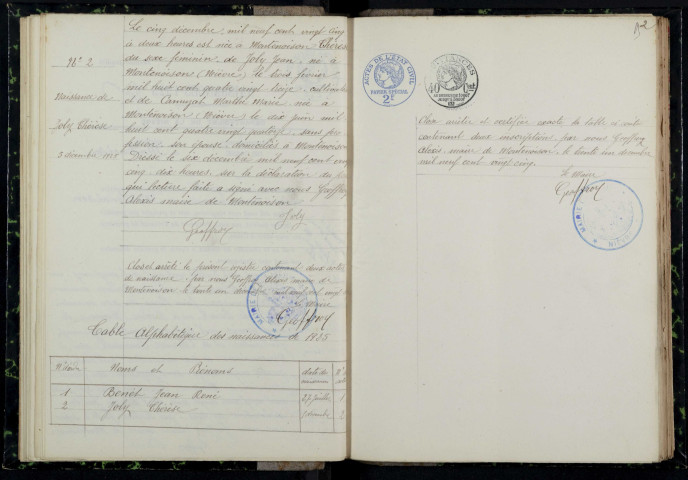 N° 2
Naissance de
Joly Thérèse
5 décembre 1925
Le cinq décembre mil neuf cent vingt cinq
à deux heures est née à Montenoison Thérèse
du sexe féminin de Joly Jean, né à
Montenoison (Nièvre) le trois février
mil huit cent quatre vingt treize
et de Marthe Marie née à
Montenoison (Nièvre) le dix juin mil
huit cent quatre vingt quatorze sans pro
fession son épouse domiciliés à Montenoison
Dressé le six décembre mil neuf cent vingt
cinq dix heures sur la déclaration du père
qui lecture faite a signé avec nous Geoffroy
Alexis maire de Montenoison
Joly
Geoffroy
Clos et arrêté le présent registre contenant deux actes
de naissance par nous Geoffroy Alexis maire de
Montenoison le trente un décembre mil neuf cent vingt
le Maire
Geoffroy
Table Alphabétique des naissances de 1925
Noms et Prénoms date de
1 Benoit Jean René 27 juillet 1
2 Joly Thérèse 5 décembre 2
ACTES DE L'ÉTAT CIVIL
PAPIER SPÉCIAL
2F
Clos arrêté et certifié exacte la table ci contre
contenant deux inscriptions par nous Geoffroy
Alexis maire de Montenoison le trente un décembre
mil neuf cent vingt cinq
le Maire
Geoffroy
MAIRIE